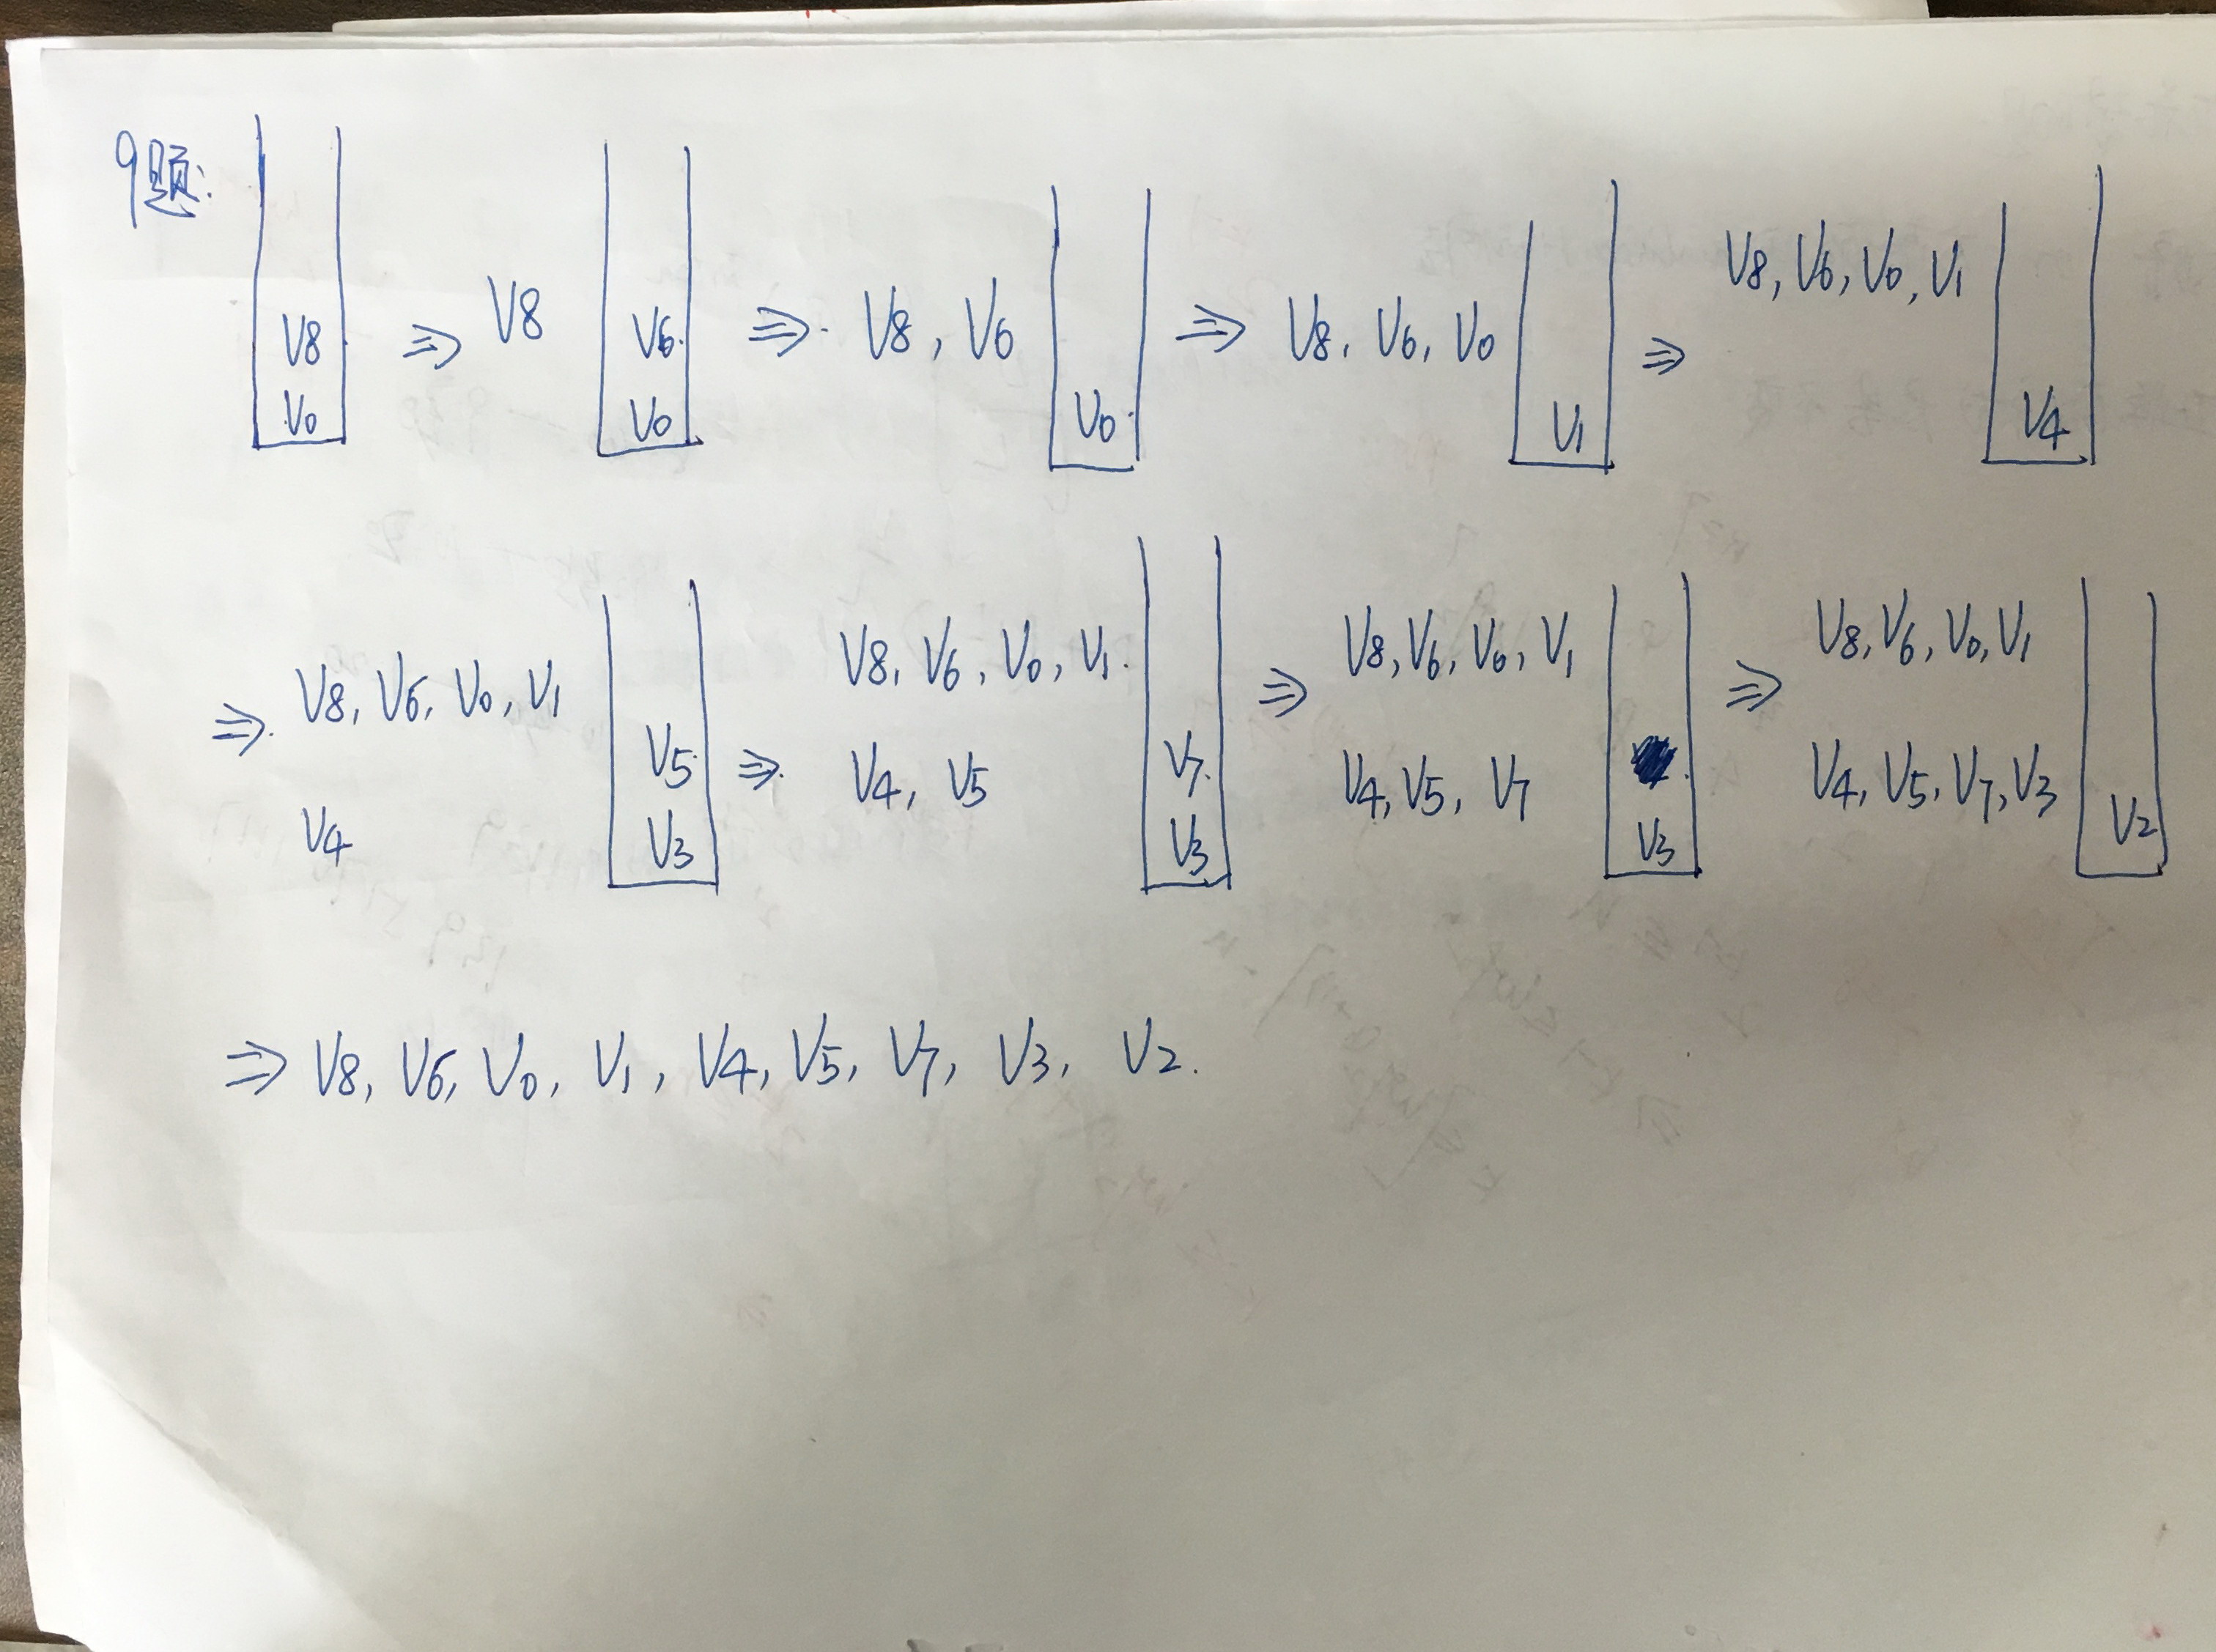 9题:
V8
V0
⇒ V8
V6
V0
⇒ V8, V6
V0
⇒ V8, V6, V0
V1
⇒ V8, V6, V0, V1
V4
⇒ V8, V6, V0, V1
V4
V5
V3
⇒ V8, V6, V0, V1
V4, V5
V7
V3
⇒ V8, V6, V0, V1
V4, V5, V7
V3
⇒ V8, V6, V0, V1
V4, V5, V7, V3
V2
⇒ V8, V6, V0, V1, V4, V5, V7, V3, V2.